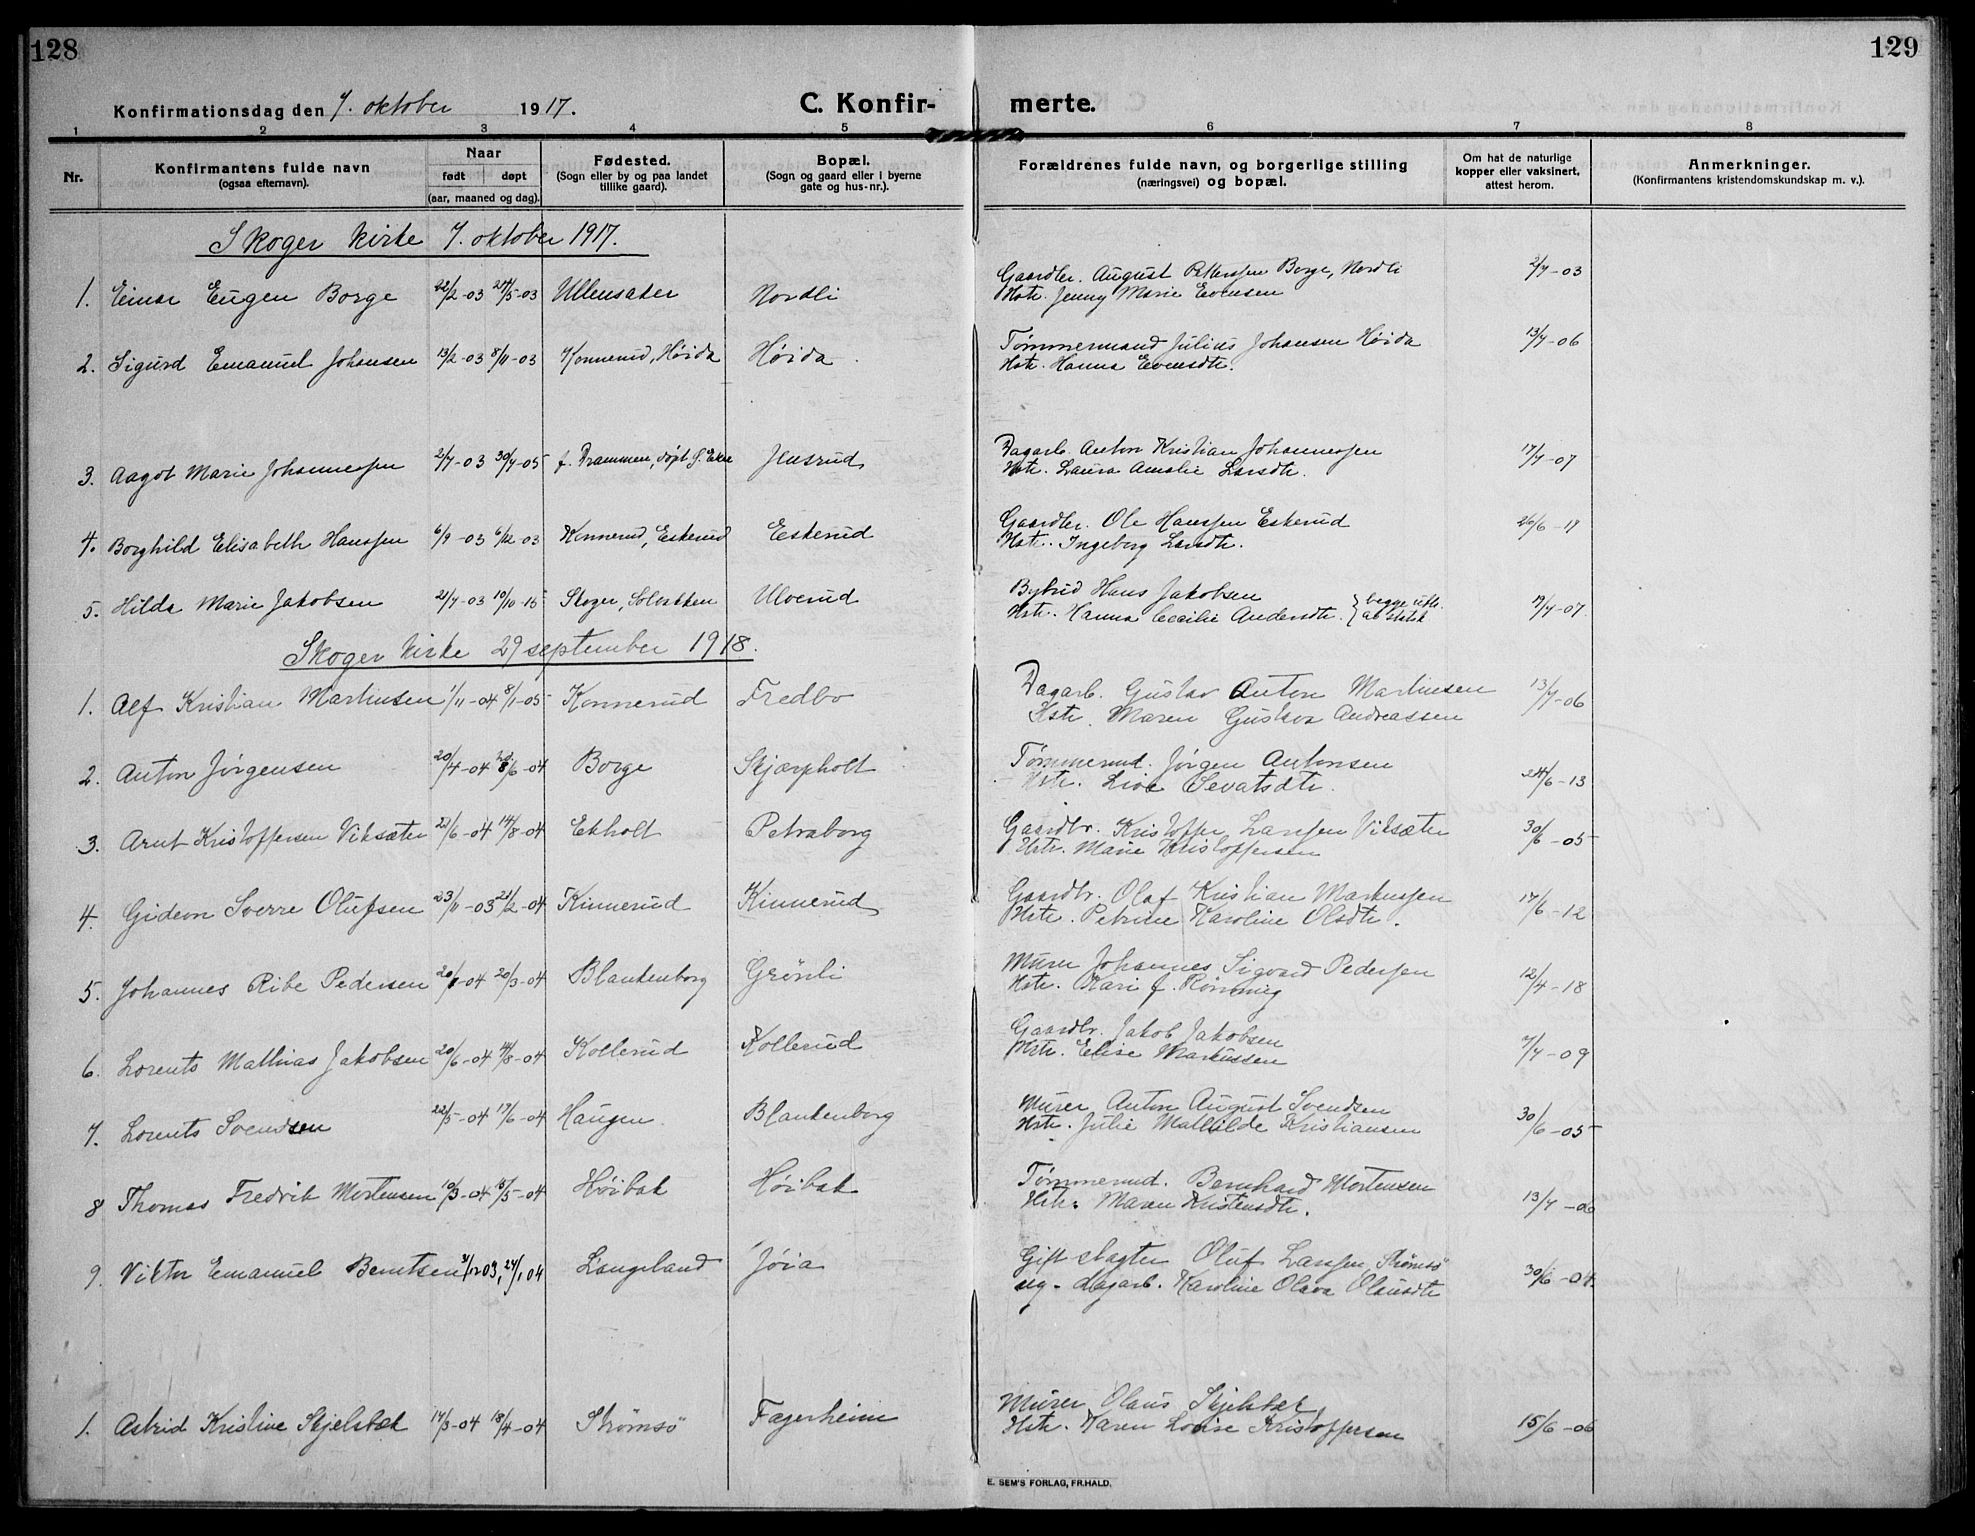 128
129
Konfirmationsdag den 7. oktober 1917.
C. Konfir-
merte.
1 2 3 4 5 6 7 8
Nr.
Konfirmantens fulde navn
(ogsaa efternavn).
Naar
født døpt
(aar, maaned og dag).
Fødested.
(Sogn eller by og paa landet
tillike gaard).
Bopæl.
(Sogn og gaard eller i byerne
gate og hus-nr.).
Forældrenes fulde navn, og borgerlige stilling
(næringsvei) og bopæl.
Om hat de naturlige
kopper eller vaksinert,
attest herom.
Anmerkninger.
(Konfirmantens kristendomskundskap m. v.).
Skoger kirke 7. oktober 1917.
Gaardbr. August Pettersen Borge, Nordli
1. Einar Eugen Borge 22/2-03 24/5-03 Ullensaker Nordli 2/7-03
Hstr. Jenny Marie Evensen
Tømmermand Julius Johansen Høida
2. Sigurd Emanuel Johansen 13/2-03 8/11-03 Konnerud, Høida Høida 13/7-06
Hstr. Hanna Evensdtr.
Dagarb. Anton Kristian Johannessen
3. Aagot Marie Johannessen 2/7-03 30/7-05 f. Drammen, døpt S. Eker Jensrud 17/7-07
Hstr. Laura Amalie Larsdtr.
Gaardbr. Ole Hanssen Eskerud
4. Borghild Elisabeth Hanssen 6/9-03 6/12-03 Konnerud, Eskerud Eskerud 26/6-17
Hstr. Ingeborg Larsdtr.
Hans Jakobsen
5. Hilda Marie Jakobsen 21/7-03 10/10-15 Skoger, Solbakken Ulverud 19/7-07
Hstr. Hanna Cecilie Andersdtr. } begge utr. av statsk
Skoger kirke 29 september 1918.
Dagarb. Gustav Anton Martinsen
1. Alf Kristian Martinsen 1/11-04 8/1-05 Konnerud Fredbo 13/7-06
Hstr. Maren Gustava Andreassen
Tømmermd. Jørgen Antonsen
2. Anton Jørgensen 20/4-04 Borge Skjærpholt 24/6-13
Hstr. Live Sevatsdtr.
Gaardbr. Kristoffer Larssen Viksæter
3. Arnt Kristoffersen Viksæter 22/6-04 14/8-04 Ekholt Petraborg 30/6-05
Hstr. Marie Kristoffersen
Gaardbr. Olaf Kristian Markussen
4. Gideon Sverre Olufsen 23/11-03 21/2-04 Kinnerud Kinnerud 17/6-12
Hstr. Petrine Karoline Olsdtr.
Murer Johannes Sigvard Pedersen
5. Johannes Ribe Pedersen 20/1-04 20/3-04 Blankenborg Grønli 12/4-18
Hstr. Kari f. Rønning
Gaardbr. Jakob Jakobsen
6. Lorents Mathias Jakobsen 20/6-04 Kollerud Kollerud 7/7-09
Hstr. Elise Markussen
Murer Anton August Svendsen
7. Lorents Svendsen 22/5-04 19/6-04 Haugen Blankenborg 30/6-05
Hstr. Julie Mathilde Kristiansen
Tømmermd. Bernhard Mortensen
8 Thomas Fredrik Mortensen 10/3-04 15/5-04 Høibak Høibak 13/7-06
Hstr. Maren Kristensdtr.
Gift slagter Oluf Larssen, Strømsø
9. Viktor Emanuel Berntsen 3/12 03, 24/1 04 Langeland Jøia 30/6-04.
ug. dagarb. Karoline Olava Olausdtr
Murer Olaus Skjelsbæk
1. Astrid Kristine Skjelsbæk 17/3-04 18/4-04 Strømsö Fagerheim 15/6-06
Hstr. Karen Lovise Kristoffersen
E. SEM'S FORLAG, FR.HALD.